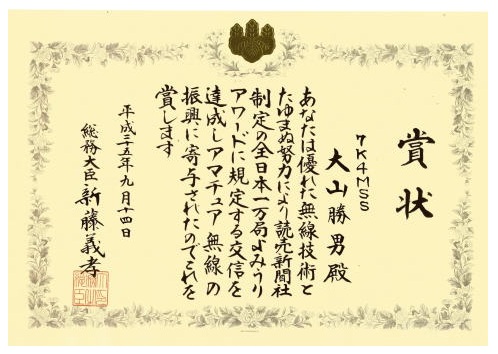 賞状
7K4MSS
大山勝男殿
あなたは優れた無線技術と
たゆまぬ努力により読売新聞社
制定の全日本一万局よみうり
アワードに規定する交信を
達成しアマチュア無線の
振興に寄与されたのでこれを
賞します
平成二十五年九月十四日
総務大臣 新藤義孝